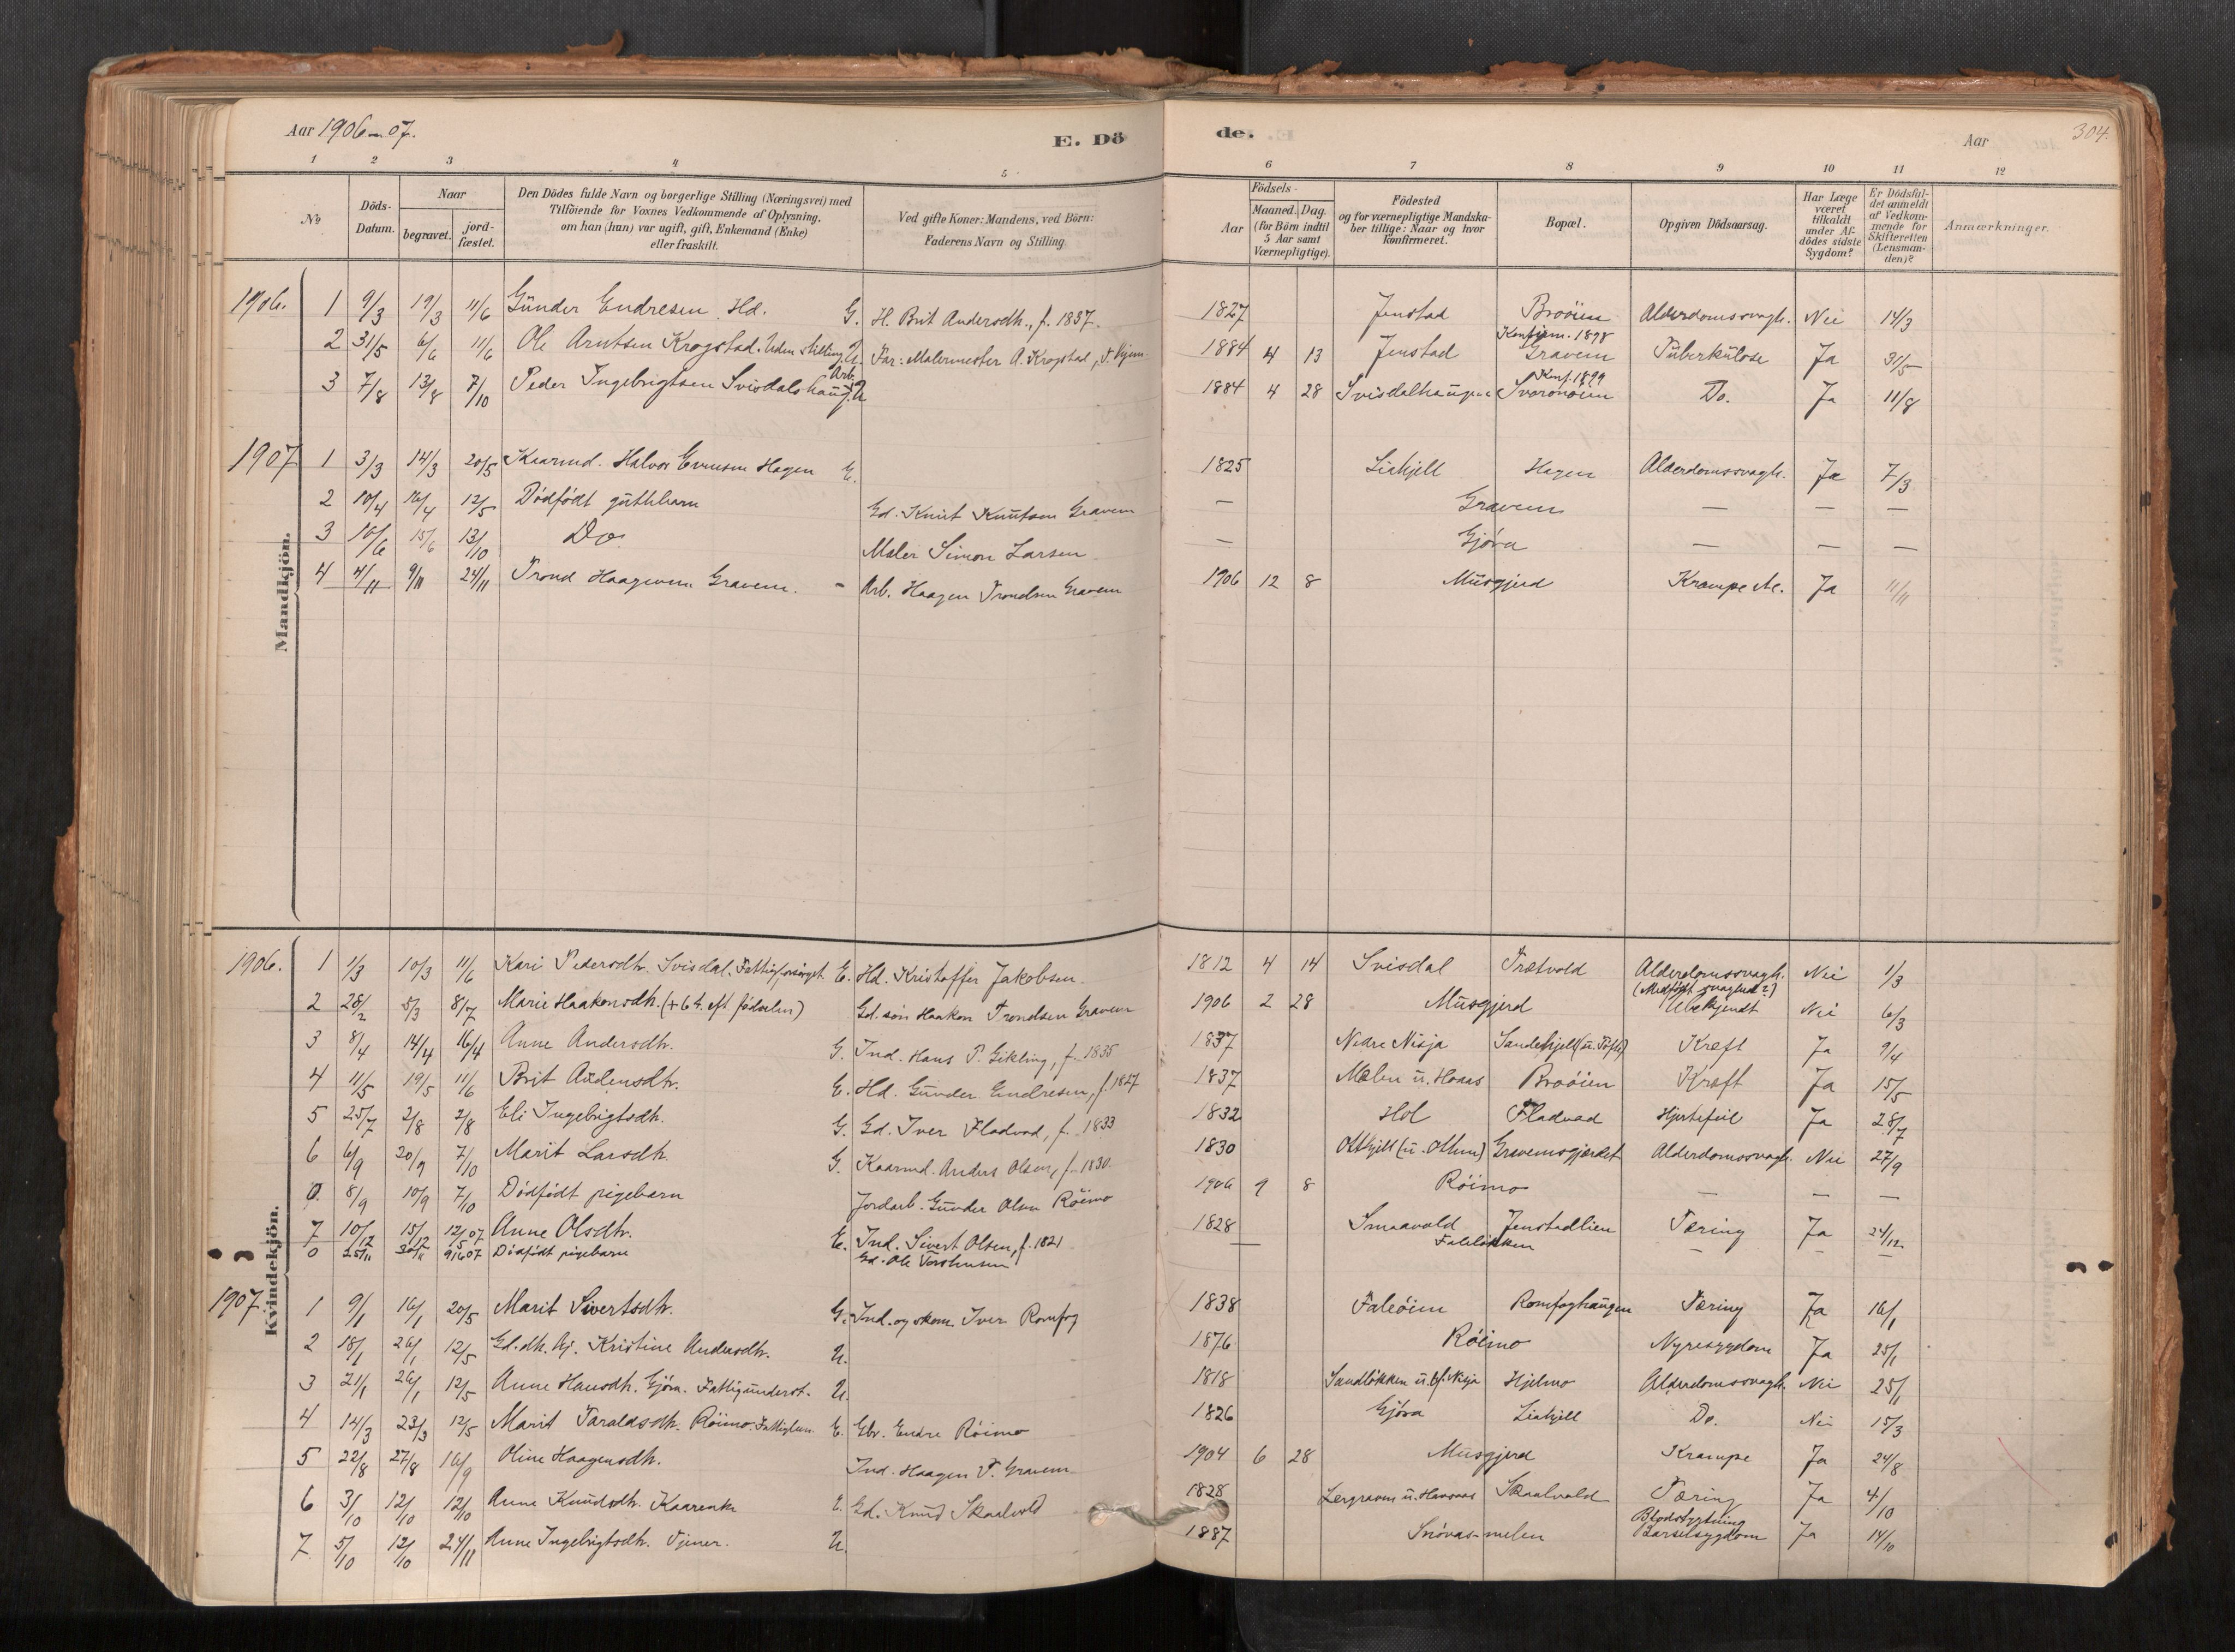 Aar 1906-07.
E. Döde.
Aar
304.
1 2 3 4 5 6 7 8 9 10 11 12
No
Döds-Datum.
Naar
begravet.
jord-fæstet.
Den Dödes fulde Navn og borgerlige Stilling (Næringsvei) med
Tilföiende for Voxnes Vedkommende af Oplysning,
om han (hun) var ugift, gift, Enkemand (Enke)
eller fraskilt.
Ved gifte Koner: Mandens, ved Börn:
Faderens Navn og Stilling.
Födsels-
Aar
Maaned. Dag.
(for Börn indtil
5 Aar samt
Værnepligtige).
Födested
og for værnepligtige Mandska-
ber tillige: Naar og hvor
konfirmeret.
Bopæl.
Opgiven Dödsaarsag.
Har Læge
været
tilkaldt
under Af-
dödes sidste
Sygdom?
Er Dödsfal-
det anmeldt
af Vedkom-
mende for
Skifteretten
(Lensman-
den)?
Anmærkninger.
Mandkjön.
1906. 1 9/3 19/3 11/6 Gunder Endresen Hd. G. H. Brit Andersdh., f. 1837. 1827 Jenstad Broöien Alderdomssvagh. Nei 14/3
Konfirm. 1898
2 31/5 6/6 11/6 Ole Arntsen Krogstad. Uden stilling U. Far: Malermester A. Krogstad, 1884 4 13 Jenstad Gravem Tuberkulose Ja 31/5
Arb. Konf. 1899
3 7/8 13/8 7/10 Peder Ingebrigtsen Svisdalshaug U 1884 4 28 Svisdalhaugen Svorönöien Do. Ja 11/8
1907 1 3/3 14/3 20/5 Kaarmd. Halvor Evensen Hagen E. 1825 Liahjell Hagen Alderdomssvagh. Ja 7/3
2 10/4 16/4 12/5 Dödfödt guttebarn Gd. Knut Knutsen Gravem — Gravem — — —
3 10/6 15/6 13/10 Do. Maler Simon Larsen — Gjöra — — —
4 4/11 9/11 24/11 Trond Haagensen Gravem. - Arb. Haagen Trondsen Gravem 1906 12 8 Musgjerd Krampe Ja 11/11
Kvindekjön.
1906. 1 1/3 10/3 11/6 Kari Pedersdtr. Svisdal. Fattigforsörget E. Hd. Kristoffer Jakobsen 1812 4 14 Svisdal Trætvold Alderdomssvagh. Nei 1/3
(Medfödt svaghed?)
2 28/2 5/3 8/7 Marie Haakonsdh. (+ 6 t. eft. födselen) Gd. sön Haakon Trondsen Gravem 1906 2 28 Musgjerd Ubekjendt Nei 6/3
3 8/4 14/4 16/4 Anne Andersdtr. G. Ind. Hans P. Gikling, f. 1835 1837 Nedre Nisja Sandehjell (u. Tofte) Kræft Ja 9/4
4 11/5 19/5 11/6 Brit Andersdtr. E. Hd. Gunder Endresen, f. 1827 1837 Melen u. Hoaas Broöien Kræft Ja 15/5
5 25/7 2/8 2/8 Eli Ingebrigtsdh. G. Gd. Iver Fladvad, f. 1833 1832 Hol Fladvad Hjertefeil Ja 28/7
6 6/9 20/9 7/10 Marit Larsdh. G. Kaarmd. Anders Olsen, f. 1830. 1830 Otthjell (u. Ottem) Gravemsgjerdet Alderdomssvagh. Nei 27/9
0. 8/9 10/9 7/10 Dödfödt pigebarn Jordarb. Gunder Olsen Röimo 1906 9 8 Röimo — — —
7 10/12 15/12 12/5 07 Anne Olsdtr. E. Ind. Sivert Olsen, f. 1821 1828 Smaavold Jenstadlien Tæring Ja 24/12
0 25/11 30/11 9/6 07 Dödfödt pigebarn Gd. Ole Torstensen — Faleløkken — — —
1907. 1 9/1 16/1 20/5 Marit Sivertsdtr. G. Ind. og skom. Iver Romfog 1838 Faleöien Romfoghaugen Tæring Ja 16/1
2 18/1 26/1 12/5 Gd. dh. Aj. Kristine Andersdtr. U. 1876 Röimo Nyresygdom Ja 25/1
3 21/1 26/1 12/5 Anne Hansdh. Gjöra. Fattigunderst. U. 1818 Sandløkken u. Nisja Hjelmo Alderdomssvagh. Nei 25/1
4 14/3 23/3 12/5 Marit Taraldsdh. Röimo. Fattiglem E. Gbr. Endre Röimo 1826 Gjöra Liahjell Do. Nei 15/3
5 22/8 27/8 16/9 Oline Haagensdh. Ind. Haagen T. Gravem 1904 6 28 Musgjerd Krampe Ja 24/8
6 3/10 12/10 12/10 Anne Knudsdtr. Kaarenke E. Gd. Knud Skaalvold 1828 Lergraven u. Hovsaas Skaalvold Tæring Ja 4/10
Blodstyrtning
7 5/10 12/10 24/11 Anne Ingebrigtsdh. Tjener. U. 1887 Snövas-melen Barselsygdom Ja 14/10